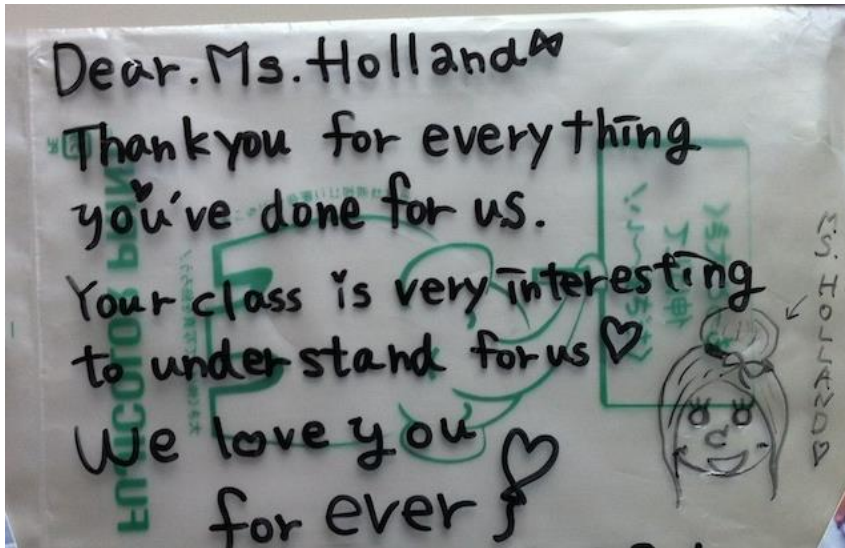 Dear. Ms. Holland
Thank you for everything
you've done for us.
Your class is very interesting
to understand for us ♡
We love you
for ever
MS. HOLLAND ♡
FUJICOLOR PRIN